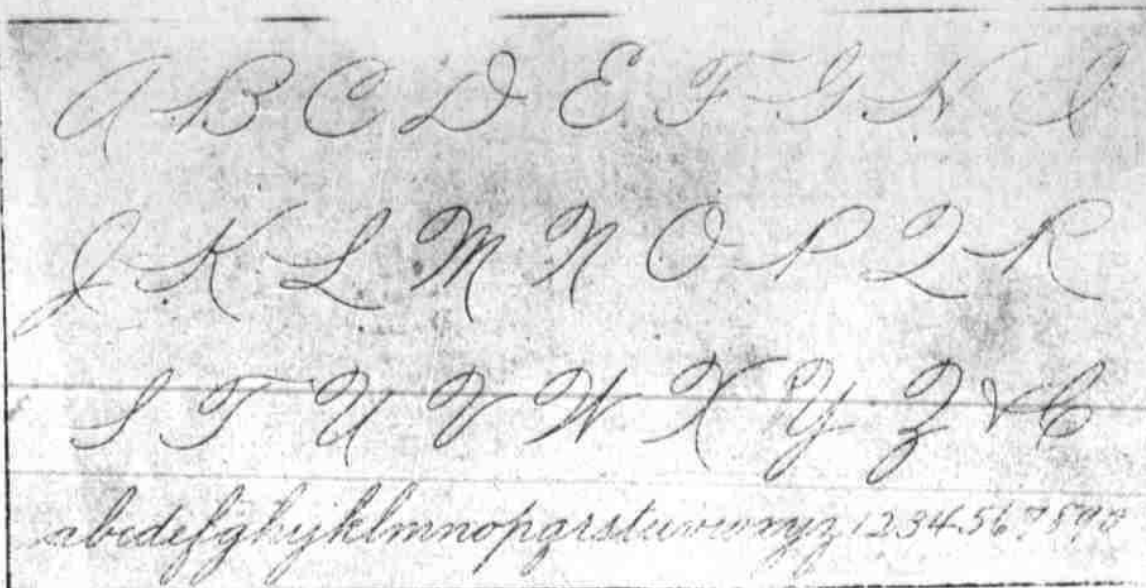 A B C D E F G H I
J K L M N O P Q R
S T U V W X Y Z & C
abcdefghijklmnopqrstuvwxyz 1234567890